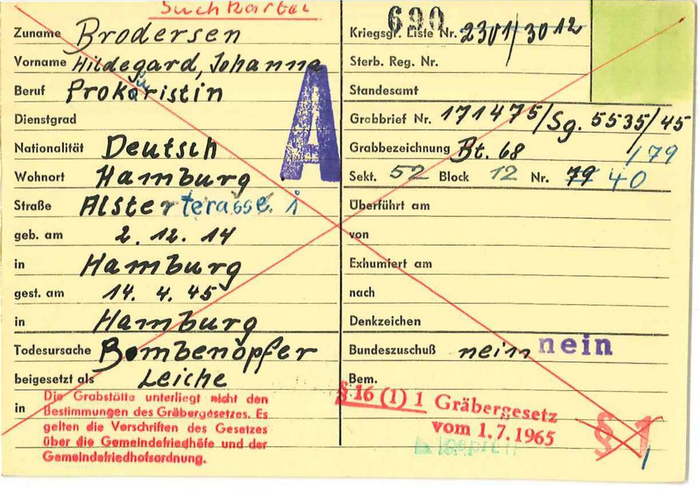 Suchkartei
Zuname Brodersen
Vorname Hildegard, Johanna
Beruf Prokuristin
Dienstgrad
Nationalität Deutsch
Wohnort Hamburg
Straße Alsterterasse 1
geb. am 2.12.14
in Hamburg
gest. am 14.4.45
in Hamburg
Todesursache Bombenopfer
beigesetzt als Leiche
in
Die Grabstätte unterliegt nicht den
Bestimmungen des Gräbergesetzes. Es
gelten die Verschriften des Gesetzes
über die Gemeindefriedhöfe und der
Gemeindefriedhofsordnung.
A
690
Kriegsgr. Liste Nr. 2301/3012
Sterb. Reg. Nr.
Standesamt
Grabbrief Nr. 171475/Sg. 5535/45
Grabbezeichnung Bt. 68 179
Sekt. 52 Block 12 Nr. 79 40
Überführt am
von
Exhumiert am
nach
Denkzeichen
Bundeszuschuß nein nein
Bem.
§ 16 (1) 1 Gräbergesetz
vom 1.7.1965
§ 1